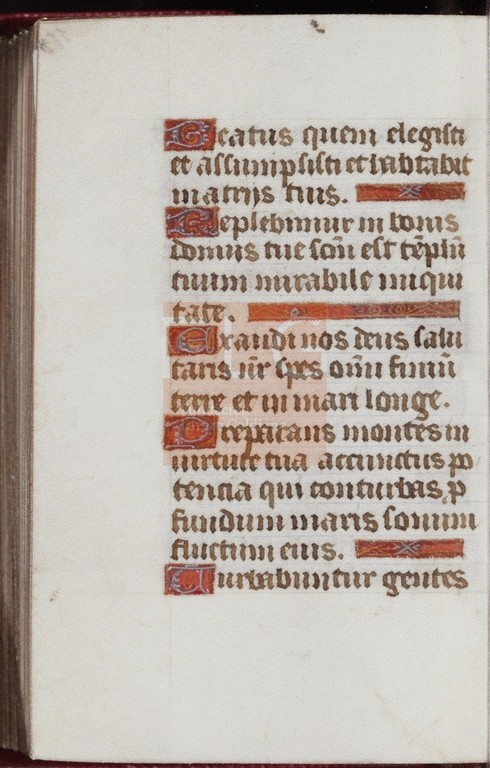 Beatus quem elegisti
et assumpsisti et habitabit
in atrijs tuis.
Replebimur in bonis
domus tue scm̄ est tēplū
tuum mirabile in equi
tate.
Exaudi nos deus salu
taris nr̄ spes om̄ finiū
terre et in mari longe.
Preparans montes in
uirtute tua accinctus po
tencia qui conturbas p
fundum maris sonum
fluctuum eius.
Turbabuntur gentes